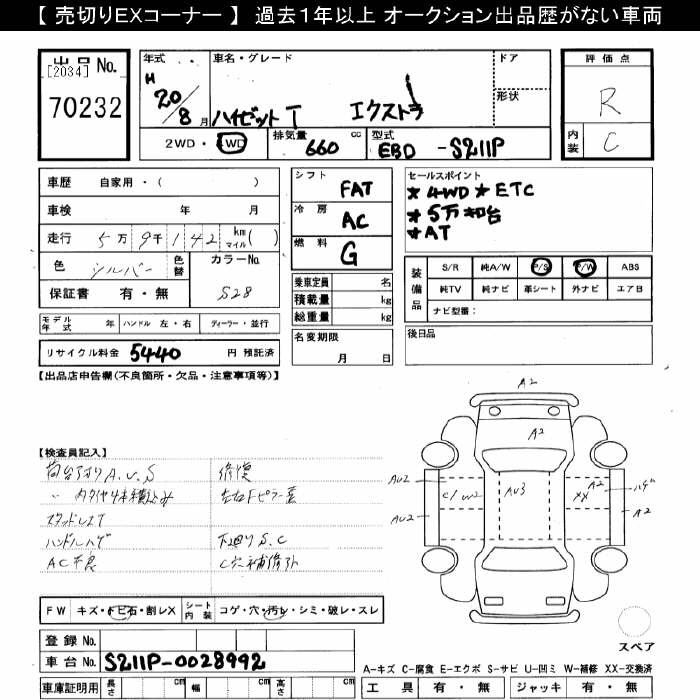 【 売切りEXコーナー 】 過去1年以上 オークション出品歴がない車両
出品 No.
[2034]
70232
年式
H
20/8月
車名・グレード
ハイゼット T エクストラ
ドア
形状
2WD・4WD
排気量 660 cc
型式 EBD -S211P
評価点
R
内装 C
車歴 自家用・( )
車検 年 月
走行 5万9千142 km マイル( )
色 シルバー 色替
カラーNo. S28
保証書 有・無
モデル年式 年 ハンドル 左・右 ディーラー・並行
リサイクル料金 5440 円 預託済
シフト FAT
冷房 AC
燃料 G
乗車定員 名
積載量 kg
総重量 kg
名変期限
月 日
セールスポイント
★4WD★ETC
★5万km台
★AT
装備品
S/R 純A/W P/S P/W ABS
純TV 純ナビ 革シート 外ナビ エアB
ナビ型番:
後日品
【出品店申告欄(不良箇所・欠品・注意事項等)】
【検査員記入】
荷台アオリA.U.S 修復
〃 内タイヤ4本積込み 左右Fピラー差
スタッドレスT
ハンドルハゲ 下廻りS.C
AC不良 C穴補修引
A2
A2
AU2
AU2
C/W2
AU3
XX
A2
ハゲ
A2
FW キズ・トビ石・割レX
シート内装 コゲ・穴・汚レ・シミ・破レ・スレ
登録 No.
車台 No. S211P-0028992
車庫証明用 長さ cm 幅 cm 高さ cm
スペア
A-キズ C-腐食 E-エクボ S-サビ U-凹ミ W-補修 XX-交換済
工具 有・無 ジャッキ 有・無